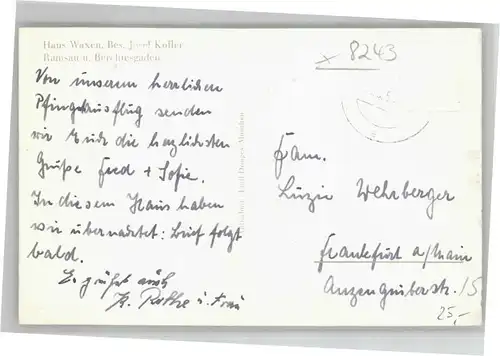 Haus Waxen, Bes. Josef Kofler
Ramsau b. Berchtesgaden
Von unserm herrlichen
Pfingstausflug senden
wir Euch die herzlichsten
Grüße Fred + Sofie.
In diesem Haus haben
wir übernachtet: Brief folgt
bald.
Es grüßt auch
K. Rothe u. Frau
x 8243
Fam.
Luzie Wehrberger
Frankfurt a/Main
Anzengruberstr. 15
25,-